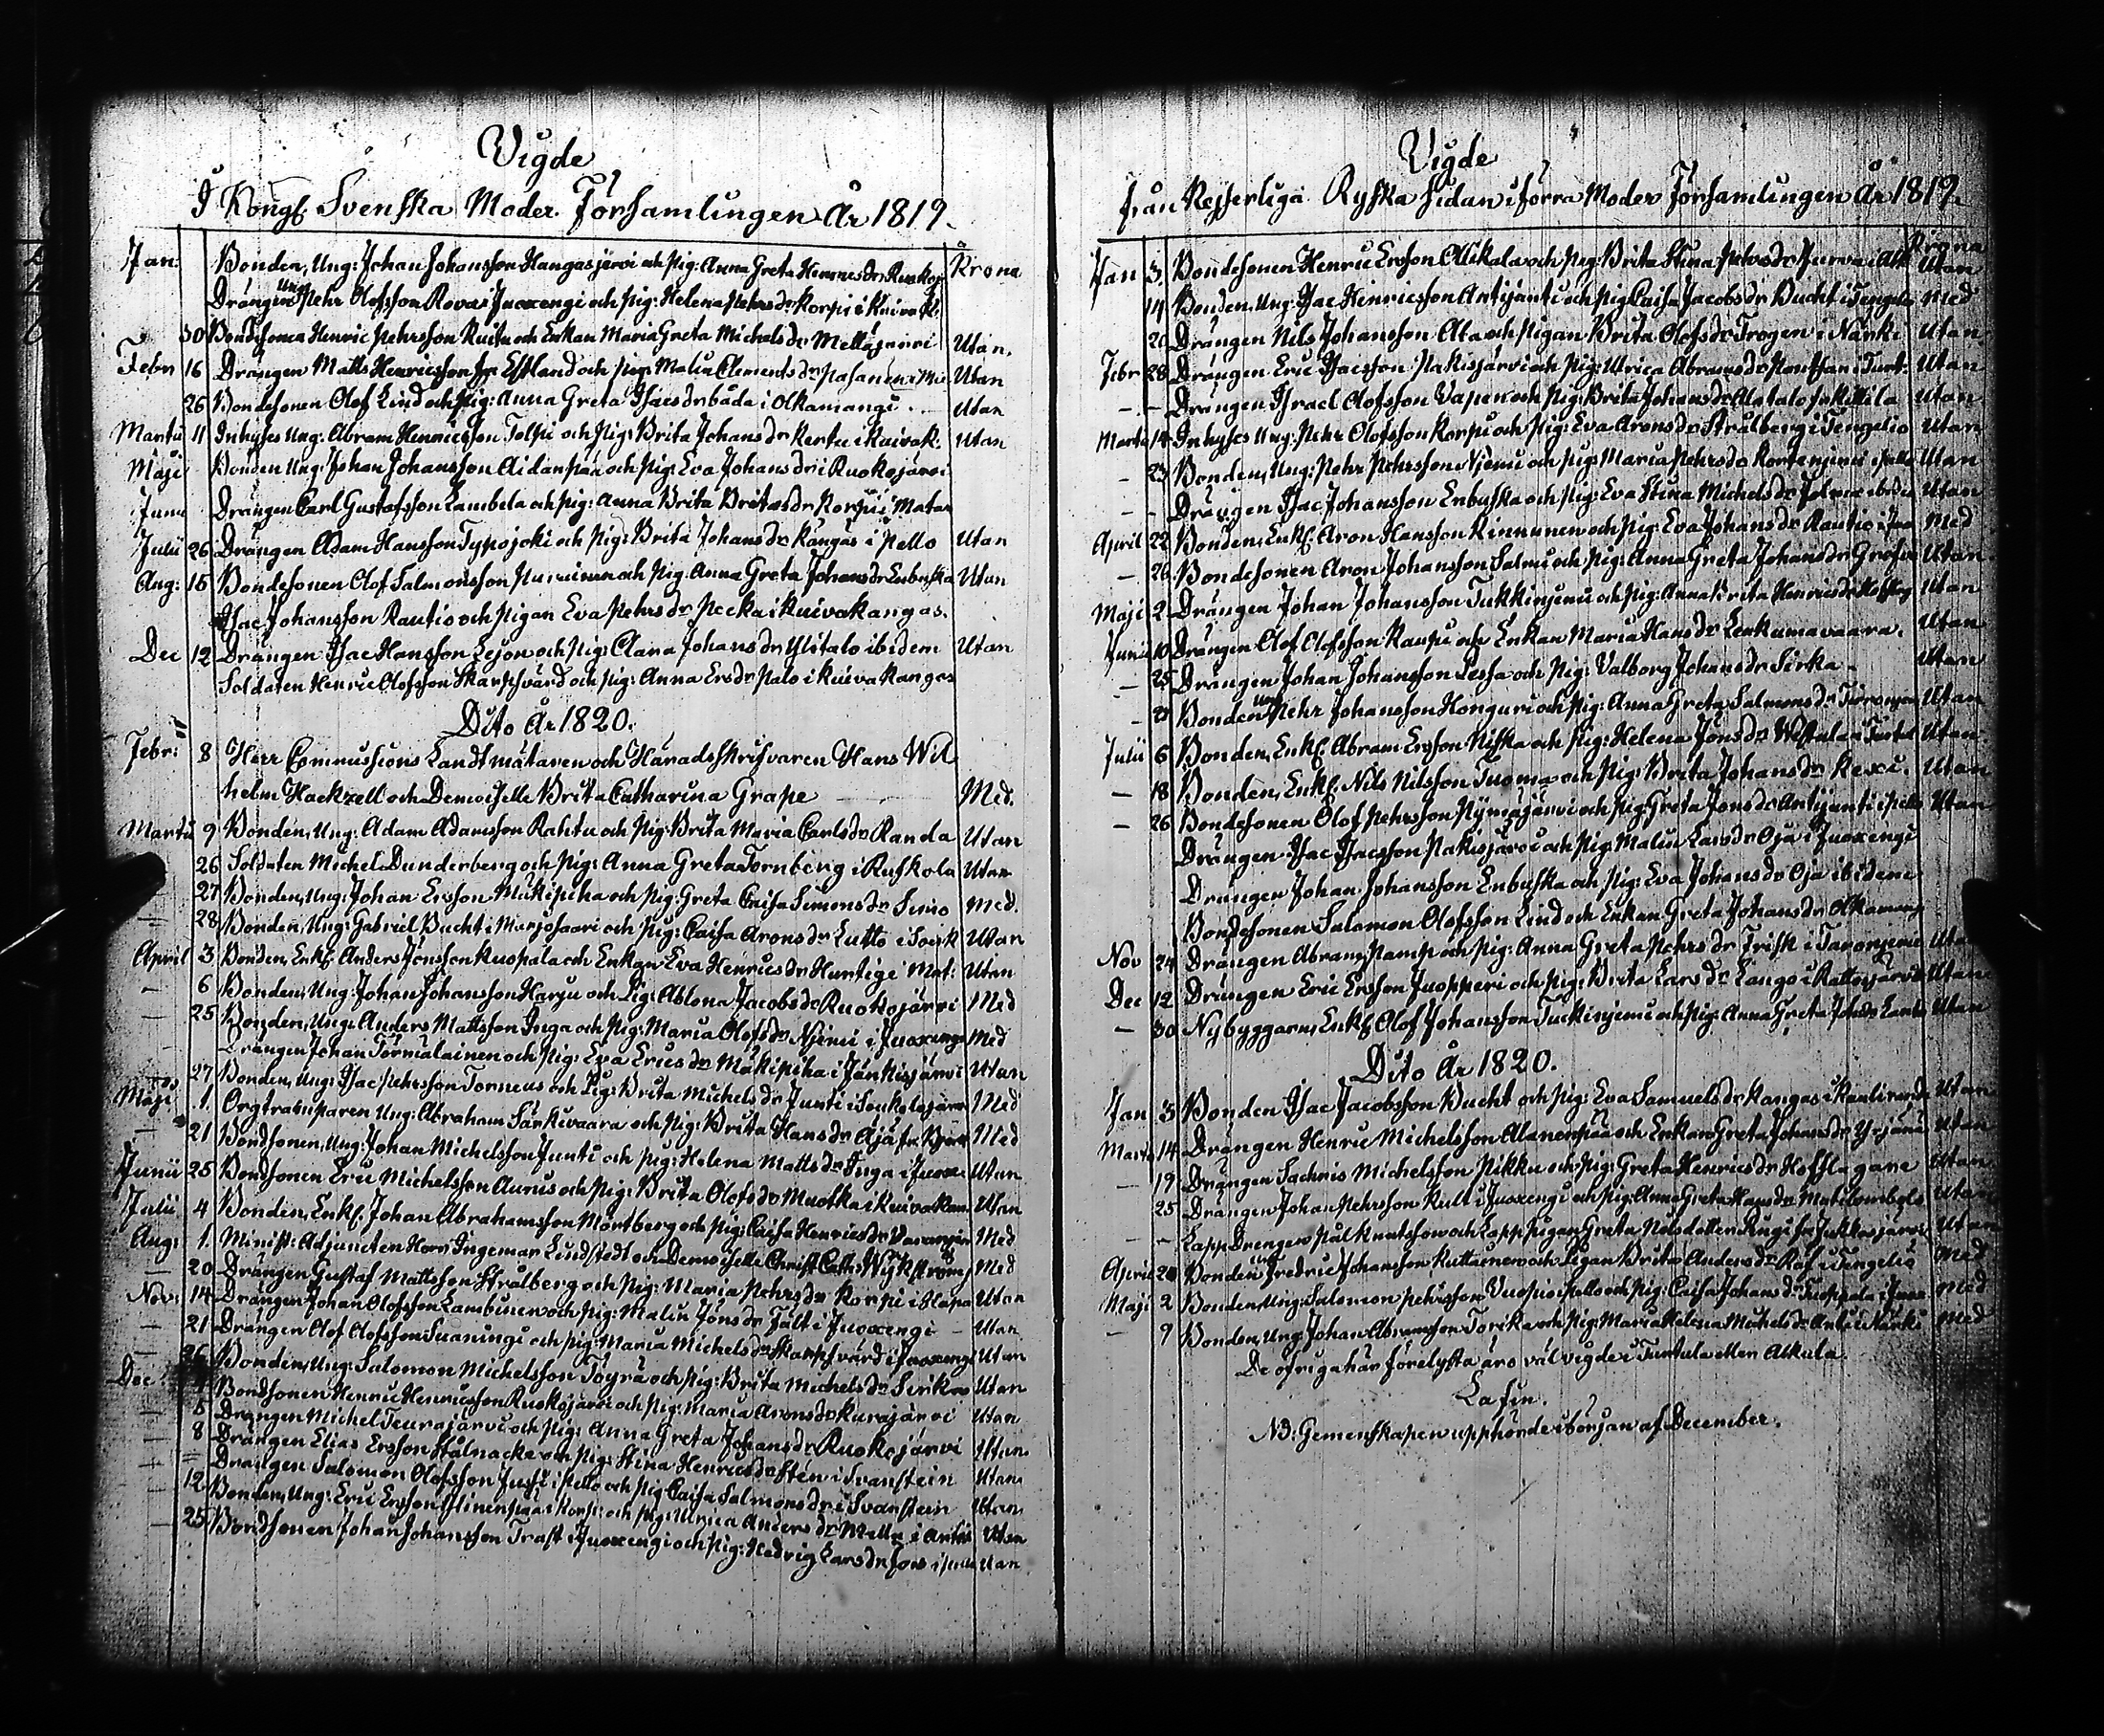 Vigde
I Kongl Svenska Moder Församlingen År 1819.
Krona
Jan: Bonden, Ung: Johan Johansson Hangasjärvi och Pig: Anna Greta Henricsdr Ruokoj
Drängen Ung Pehr Olofsson Rova i Juoxengi och Pig: Helena Pehrsdr Korpi i Kuivak:
30 Bondesonen Henric Pehrsson Ruitu och Enkan Maria Greta Michelsdr Mettäjärvi Utan.
Febr 16 Drängen Matts Henricsson fr Estland och Pig: Malin Clementsdr Pasanen Utan
26 Bondesonen Olof Lind och Pig: Anna Greta Isacsdr båda i Alkamangi Utan
Martii 11 Inhyses Ung: Abram Henricsson Tolpi och Pig: Brita Johansdr Kertu i Kuivak: Utan
Maji Bonden Ung: Johan Johansson Aidanpää och Pig: Eva Johansdr i Ruokojärvi
Junii Drängen Carl Gustafsson Lambela och Pig: Anna Brita Britasdr Korpi i Matar
Julii 26 Drängen Adam Hansson Typojoki och Pig: Brita Johansdr Kangas i Pello Utan
Aug: 15 Bondesonen Olof Salmonsson och Pig: Anna Greta Johansdr Enbuska Utan
Isac Johansson Rautio och Pigan Eva Pehrsdr Pecka i Kuivakangas.
Dec 12 Drängen Isac Hansson Lejon och Pig: Clara Johansdr Ylitalo ibidem Utan
Soldaten Henric Olofsson Skarpsvärd och Pig: Anna Ersdr Palo i Kuivakangas
Dito År 1820.
Febr: 8 Herr Commissions Landtmätaren och Häradsskrifvaren Hans Wil
helm Hackzell och Demoiselle Brita Catharina Grape Med.
Martii 9 Bonden, Ung: Adam Adamsson Rahtu och Pig: Brita Maria Carlsdr Randa Utan
26 Soldaten Michel Dunderberg och Pig: Anna Greta Tornberg i Ruskola Utan
27 Bonden, Ung: Johan Ersson Mukipika och Pig: Greta Caisa Simonsdr Simo Med.
— 28 Bonden, Ung: Gabriel Bucht i Marjosaari och Pig: Caisa Aronsdr Lutto i Torik Utan
April 3 Bonden, Enkl: Anders Jönsson Kuopala och Enkan Eva Henricsdr Hurtigi Mat: Utan
— 6 Bonden, Ung: Johan Johansson Harju och Pig: Ablona Jacobsdr Ruokojärvi Med
— 25 Bonden, Ung: Anders Mattsson Inga och Pig: Maria Olofsdr Niemi i Juoxengi Med
Drängen Johan Törmälainen och Pig: Eva Ericsdr Mäkipika i Jänkisjärvi Utan
— 27 Bonden, Ung: Isac Pehrsson Torneus och Pig: Brita Michelsdr Junti i Soukolojärvi Med
Maji 1. Orgtramparen Ung: Abraham Särkivaara och Pig: Brita Hansdr Äjä Med
— 21 Bondsonen, Ung: Johan Michelsson Junti och Pig: Helena Mattsdr Inga i Juoxe Med
Junii 25 Bondsonen Eric Michelsson Aurus och Pig: Brita Olofsdr Muotka i Kuivakan Utan
Julii 4 Bonden, Enkl: Johan Abrahamsson Mörtberg och Pig: Caisa Henricsdr Utan
Aug: 1. Minist: Adjuncten Herr Ingemar Lindstedt och Demoiselle Christ: Cath: Wykström Med
— 20 Drängen Gustaf Mattsson Strålberg och Pig: Maria Pehrsdr Korpi i Haapa Med
Nov: 14 Drängen Johan Olofsson Lambinen och Pig: Malin Jönsdr Fält i Juoxengi Utan
— 21 Drängen Olof Olofsson Suaningi och Pig: Maria Michelsdr Skarpsvärd i Juoxengi Utan
26 Bonden, Ung: Salomon Michelsson Töyrä och Pig: Brita Michelsdr Sirkas Utan
Dec Bondsonen Henric Henricsson Ruokojärvi och Pig: Maria Aronsdr Kurajärvi Utan
— 5 Drängen Michel Teurajärvi och Pig: Anna Greta Johansdr Ruokojärvi Utan
— 8 Drängen Elias Ersson Stålnacke och Pig: Stina Henricsdr Sten i Svanstein Utan
— Drängen Salomon Olofsson Juusi i Pello och Pig Caisa Salmonsdr i Svanstein Utan
— 12 Bonden, Ung: Eric Ersson och Pig: Ulrica Andersdr Utan
— 25 Bondsonen Johan Johansson Trast i Juoxengi och Pig: Hedvig Larsdr Fors i Pello Utan
Vigde
från Kejserliga Ryska sidan i förra Moder Församlingen År 1819.
Krona
Jan 3. Bondesonen Henric Ersson Alkkala och Pig: Brita Stina Pehrsdr Purva i Alk Utan
14 Bonden, Ung: Isac Hinricsson Antijänti och Pig Caisa Jacobsdr Bucht i Tengeliö Med
20 Drängen Nils Johansson Ala och Pigan Brita Olofsdr Trogen i Närki Utan
Febr 28 Drängen Eric Isacsson Pakisjärvi och Pig: Ulrica Abramsdr Rautsan i Turt: Utan
— — Drängen Israel Olofsson Vapen och Pig: Brita Johansdr Alatalo fr Kittila Utan
Martii 14 Inhyses Ung: Pehr Olofsson Korpi och Pig: Eva Aronsdr Strålberg i Tengeliö Utan
— 23 Bonden, Ung: Pehr Pehrsson Niemi och Pig: Maria Pehrsdr Kortenjemi i Pello Utan
— — Drängen Isac Johansson Enbuska och Pig: Eva Stina Michelsdr Utan
April 22 Bonden, Enkl: Aron Hansson Kinnunen och Pig: Eva Johansdr Rautio i Juo Med
— 26 Bondesonen Aron Johansson Salmi och Pig: Anna Greta Johansdr Utan
Maji 2 Drängen Johan Johansson Tukkinjemi och Pig: Anna Brita Henricsdr Utan
Junii 10 Drängen Olof Olofsson Kaupi och Enkan Maria Hansdr Lenkamavaara. Utan
— 25 Drängen Johan Johansson Lessa och Pig: Valborg Johansdr Sirka — Utan
— Bonden Ung Pehr Johansson Honguri och Pig: Anna Greta Salmonsdr Utan
Julii 6 Bonden, Enkl: Abram Ersson Niska och Pig: Helena Jönsdr Westula i Turtul Utan
— 18 Bonden, Enkl: Nils Nilsson Tuoma och Pig: Brita Johansdr Kexi. Utan
— 26 Bondesonen Olof Pehrsson och Pig: Greta Jönsdr Antijänti i Pello Utan
Drängen Isac Isacsson Pakisjärvi och Pig: Malin Larsdr Oja i Juoxengi
Drängen Johan Johansson Enbuska och Pig: Eva Johansdr Oja ibidem
Bondesonen Salamon Olofsson Lind och Enkan Greta Johansdr Alkamang
Nov 24 Drängen Abram Pamp och Pig: Anna Greta Pehrsdr Frisk i Taronjemi Utan
Dec 12 Drängen Eric Ersson Juopperi och Pig: Brita Larsdr Lango i Rattosjärvi Utan
— 30 Nybyggarn, Enkl: Olof Johansson Tuckinjemi och Pig: Anna Greta Johsdr Utan
Dito År 1820.
Jan 3 Bonden Isac Jacobsson Bucht och Pig: Eva Samuelsdr Kangas i Kaulirand Utan
Martii 14 Drängen Henric Michelsson Alanenpää och Enkan Greta Johansdr Utan
— 19 Drängen Sachris Michelsson Pikku och Pig: Greta Henricsdr Hofslagare Utan
25 Drängen Johan Pehrsson Kult i Juoxengi och Pig: Anna Greta Hansdr Utan
— — Lapp Drengen Pål Knutsson och Lapp Pigan Greta Nilsdotter Utan
April 20 Bonden Ung Fredric Johansson Kuttainen och Pigan Brita Andersdr Räf i Tengeliö Med
Maji 2 Bonden, Ung: Salomon Pehrsson Vuopio i Pello och Pig: Caisa Johansdr Kuoppala i Juox Med
— 9 Bonden, Ung: Johan Abramsson Torika och Pig: Maria Helena Michelsdr Anti i Närki Med
De öfriga här förelysta äro väl vigde i Turtula eller Alkula.
Lasin.
NB: Gemenskapen upphörde i början af December.